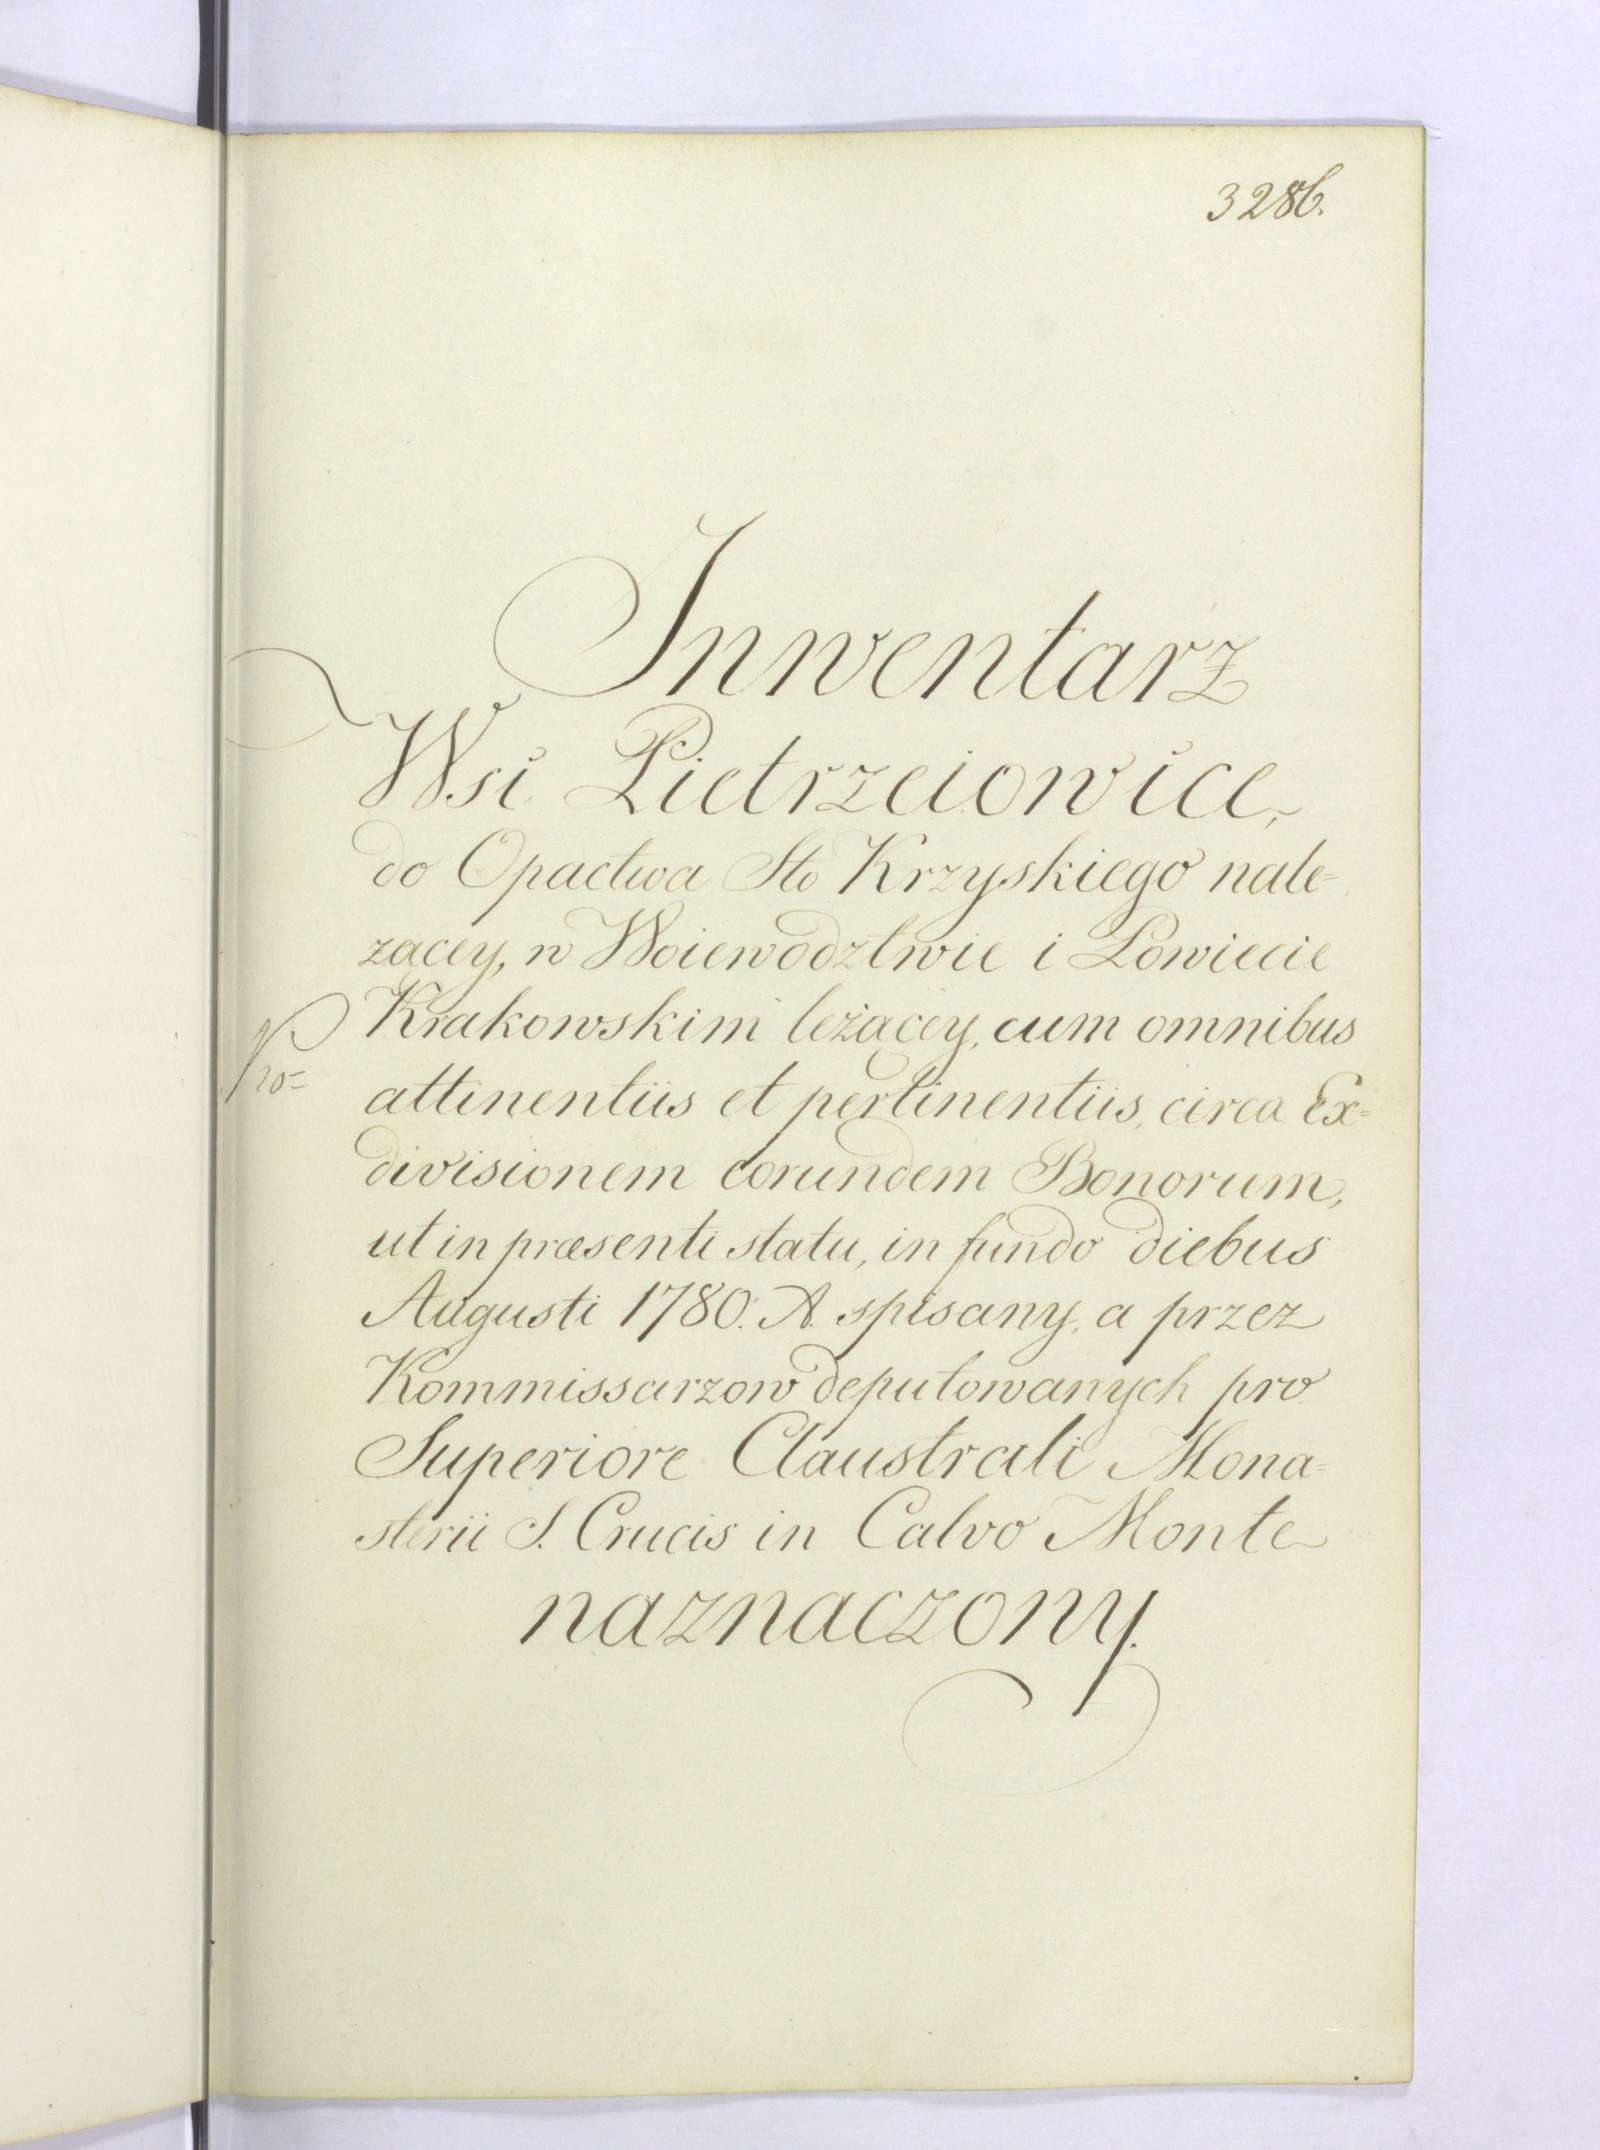 3286.
Inwentarz
Wsi Pietrzeiowice,
do Opactwa Sto Krzyskiego nale=
zacey, w Woiewodztwie i Powiecie
Krakowskim leżącey, cum omnibus
attinentiis et pertinentiis, circa Ex=
divisionem eorundem Bonorum,
ut in præsenti statu, in fundo diebus
Augusti 1780. A. spisany, a przez
Kommissarzow deputowanych pro
Superiore Claustrali Mona=
sterii S. Crucis in Calvo Monte
naznaczony.